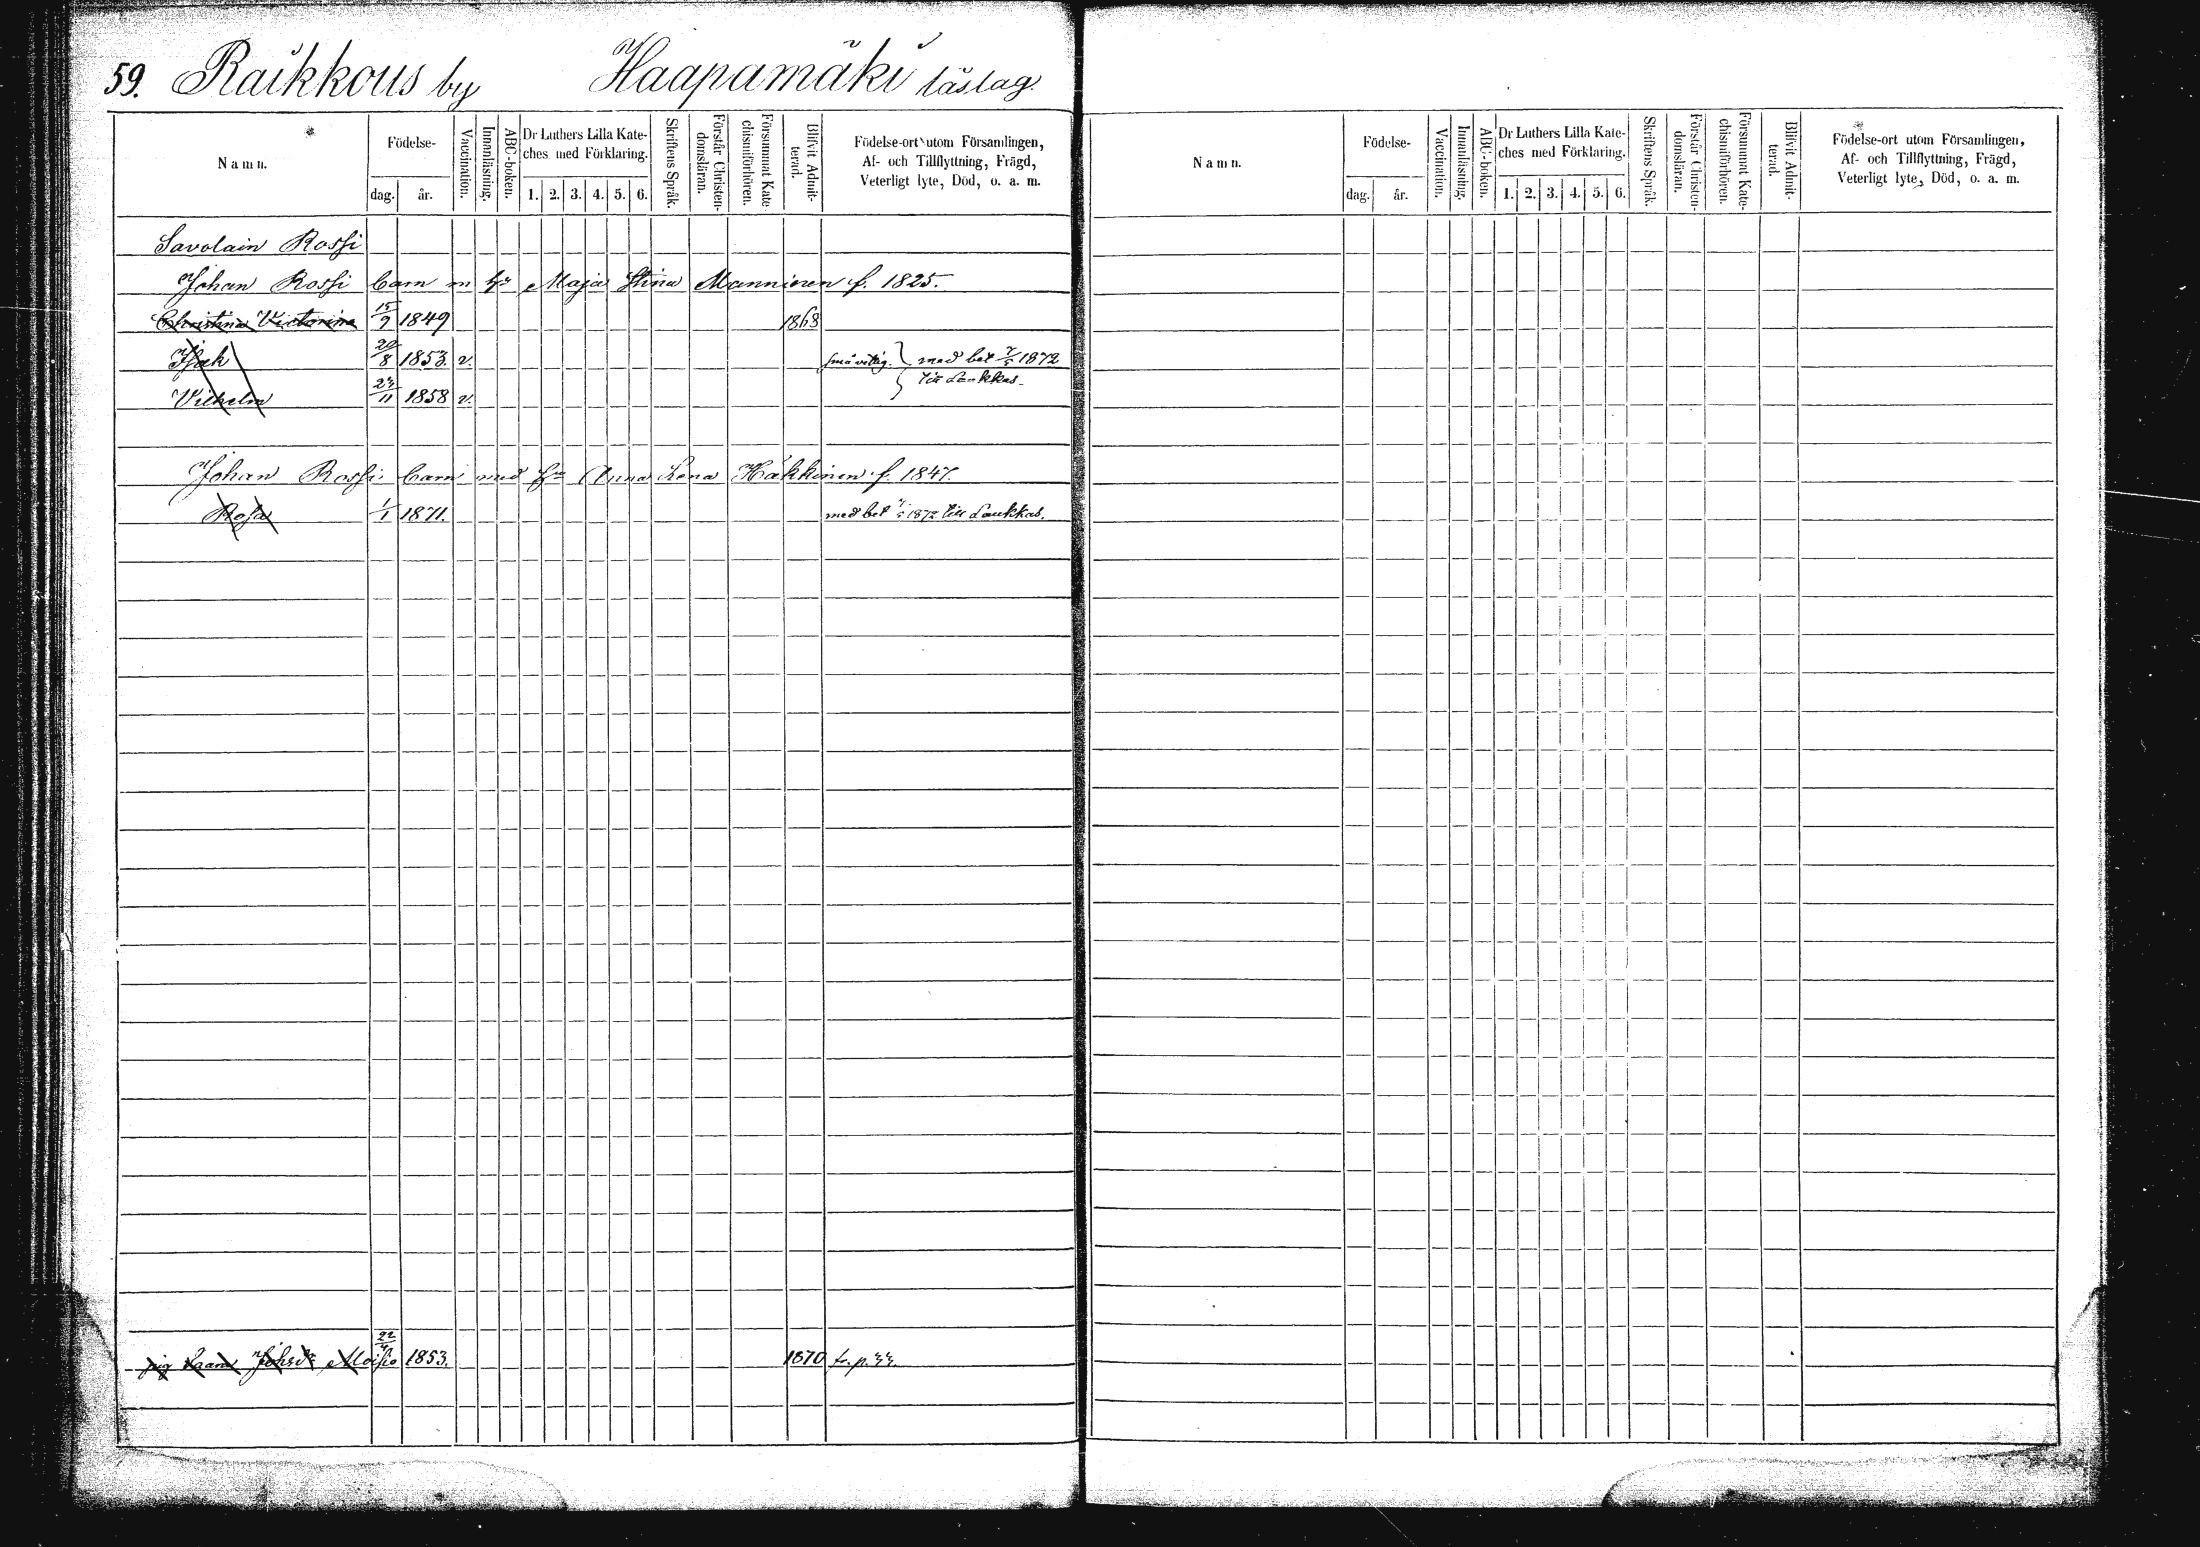 59. Raikkous by Haapamäki läslag.
Namn. Födelse- dag. år. Vaccination. Innanläsning. ABC-boken. Dr Luthers Lilla Kate-ches med Förklaring. 1. 2. 3. 4. 5. 6. Skriftens Språk. Förstår Christen-domsläran. Försummat Kate-chismiförhören. Blifvit Admit-terad. Födelse-ort utom Församlingen, Af- och Tillflyttning, Frägd, Veterligt lyte, Död, o. a. m.
Savolain Rossi
Johan Rossi barn m hu Maja Stina Manninen f. 1825.
Christina Victorina 15/9 1849 1868
Isak 20/8 1853. v. småvettig. } med bet 7/5 1872
till Laukkas.
Vilhelm 24/11 1858 v.
Johan Rossi barn med hu Anna Lena Häkkinen f. 1847.
Rosa 1/1 1871. med bet 7/5 1872 till Laukkas.
pig Johsdr Moisio 22/4 1853. 1870 fr. p. 33.
Namn. Födelse- dag. år. Vaccination. Innanläsning. ABC-boken. Dr Luthers Lilla Kate-ches med Förklaring. 1. 2. 3. 4. 5. 6. Skriftens Språk. Förstår Christen-domsläran. Försummat Kate-chismiförhören. Blifvit Admit-terad. Födelse-ort utom Församlingen, Af- och Tillflyttning, Frägd, Veterligt lyte, Död, o. a. m.